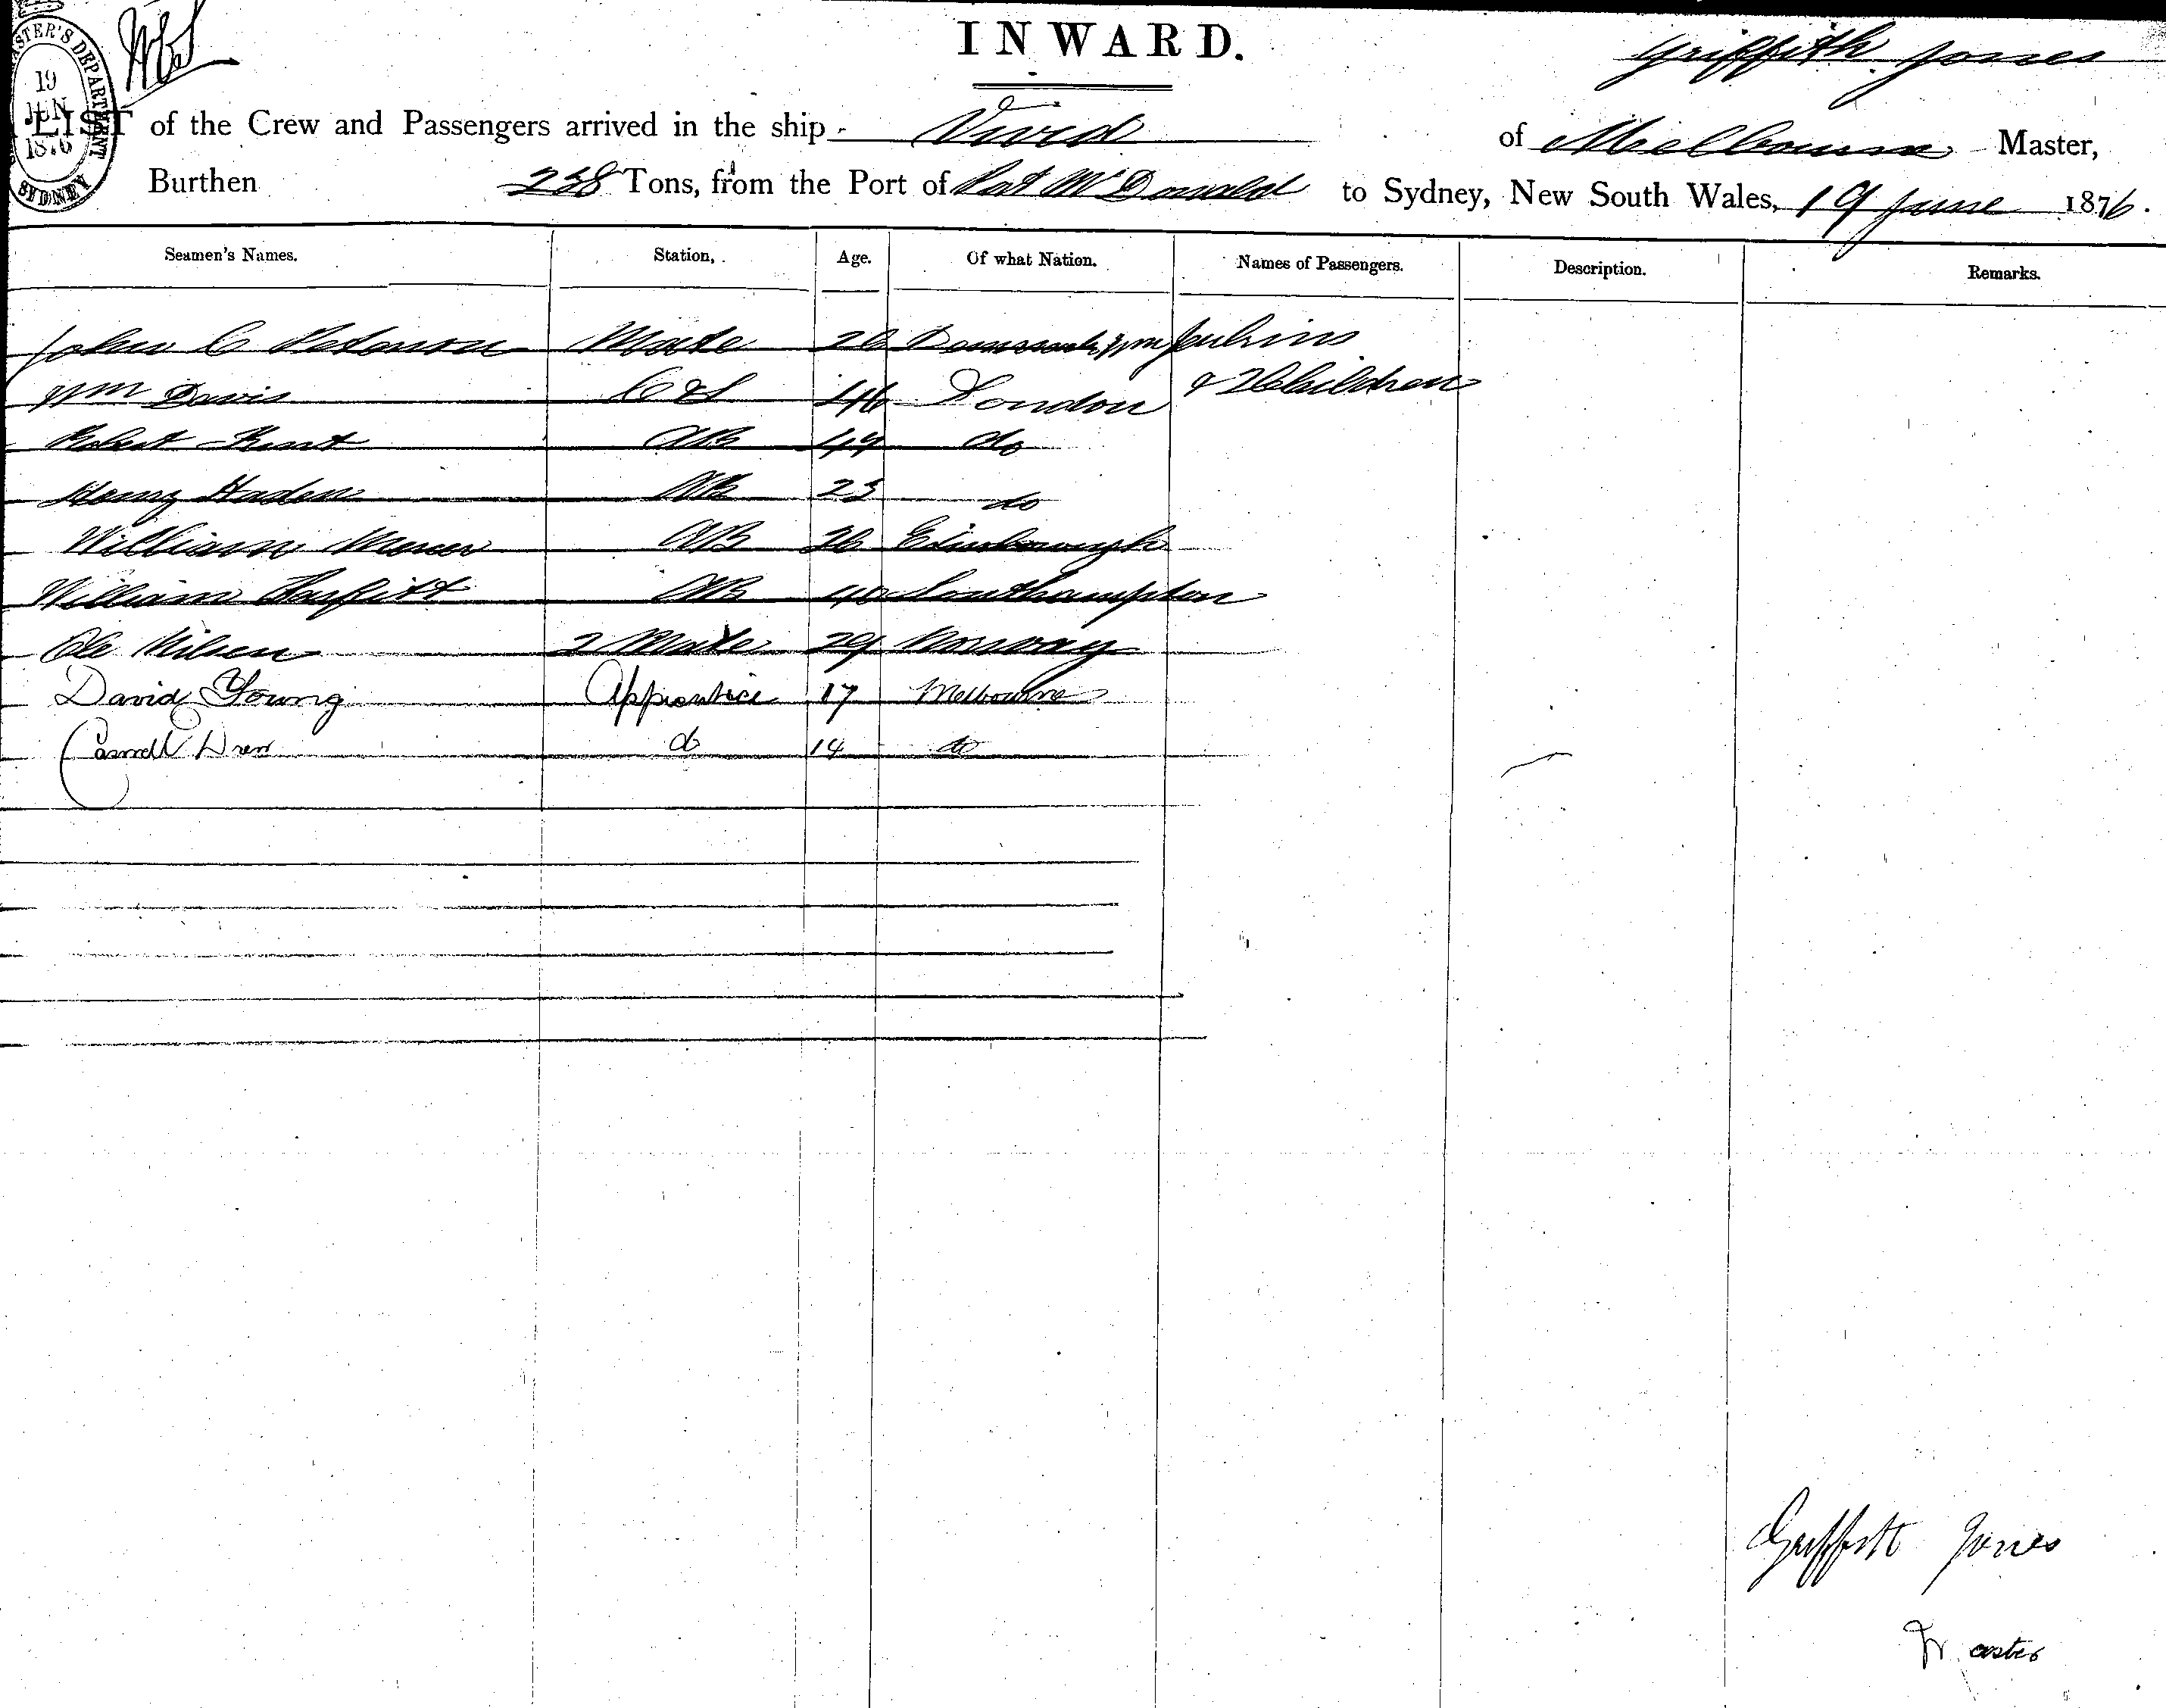 INWARD.
Griffith Jones
MASTER'S DEPARTMENT
19
JUN
1876
SYDNEY
LIST of the Crew and Passengers arrived in the ship Vivid of Melbourne Master,
Burthen 238 Tons, from the Port of Port McDonald to Sydney, New South Wales, 19 June 1876.
Seamen's Names. Station, Age. Of what Nation. Names of Passengers. Description. Remarks.
John C Peterson Mate 26 Denmark Wm Jenkins
Wm Davis C & S 46 London & 2 Children
Robert 44 do
Henry Haden AB 23 do
William AB 26 Edinborough
William Parfitt AB 40 Southampton
Ole Nilsen 2 Mate 29 Norway
David Young Apprentice 17 Melbourne
Drew do 14 do
Griffith Jones